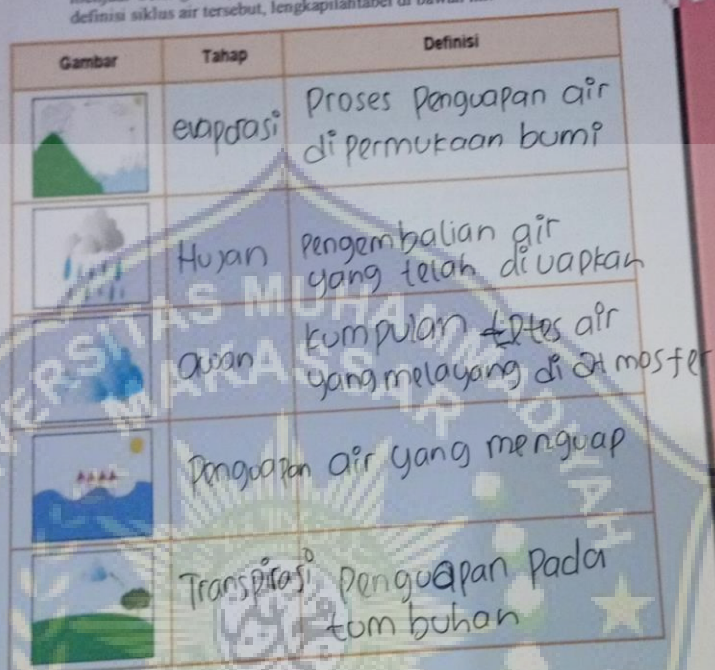 definisi siklus air tersebut, lengkapilah tabel di bawah
Gambar Tahap Definisi
evaporasi Proses Penguapan air
di permukaan bumi
Hujan Pengembalian air
yang telah diuapkan
awan kumpulan tetes air
yang melayang di atmosfer
Penguapan air yang menguap
Transpirasi Penguapan Pada
tumbuhan
UNIVERSITAS MUHAMMADIYAH
MAKASSAR